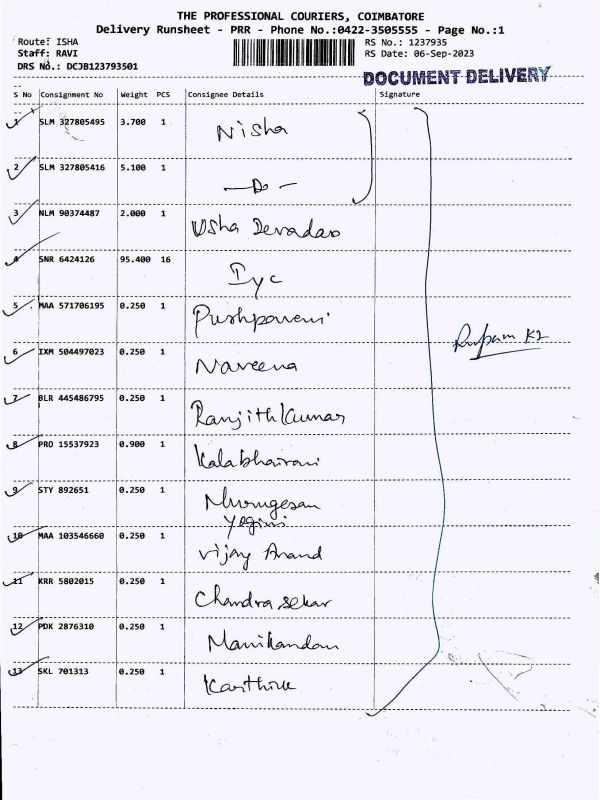 THE PROFESSIONAL COURIERS, COIMBATORE
Delivery Runsheet - PRR - Phone No.:0422-3505555 - Page No.:1
Route: ISHA RS No.: 1237935
Staff: RAVI RS Date: 06-Sep-2023
DRS No.: DCJB123793501
DOCUMENT DELIVERY
S No Consignment No Weight PCS Consignee Details Signature
1 SLM 327805495 3.700 1 Nisha
2 SLM 327805416 5.100 1 —Do—
3 NLM 90374487 2.000 1 Usha Devadas
4 SNR 6424126 95.400 16 Iyc
5 MAA 571706195 0.250 1 Pushpaveni
6 IXM 504497023 0.250 1 Naveena
Rupam K2
7 BLR 445486795 0.250 1 Ranjith Kumar
8 PRO 15537923 0.900 1 Kalabhairavi
9 STY 892651 0.250 1 Murugesan
Yogini
10 MAA 103546660 0.250 1 Vijay Anand
11 KRR 5802015 0.250 1 Chandra sekar
12 PDK 2876310 0.250 1 Manikandan
13 SKL 701313 0.250 1 Karthik